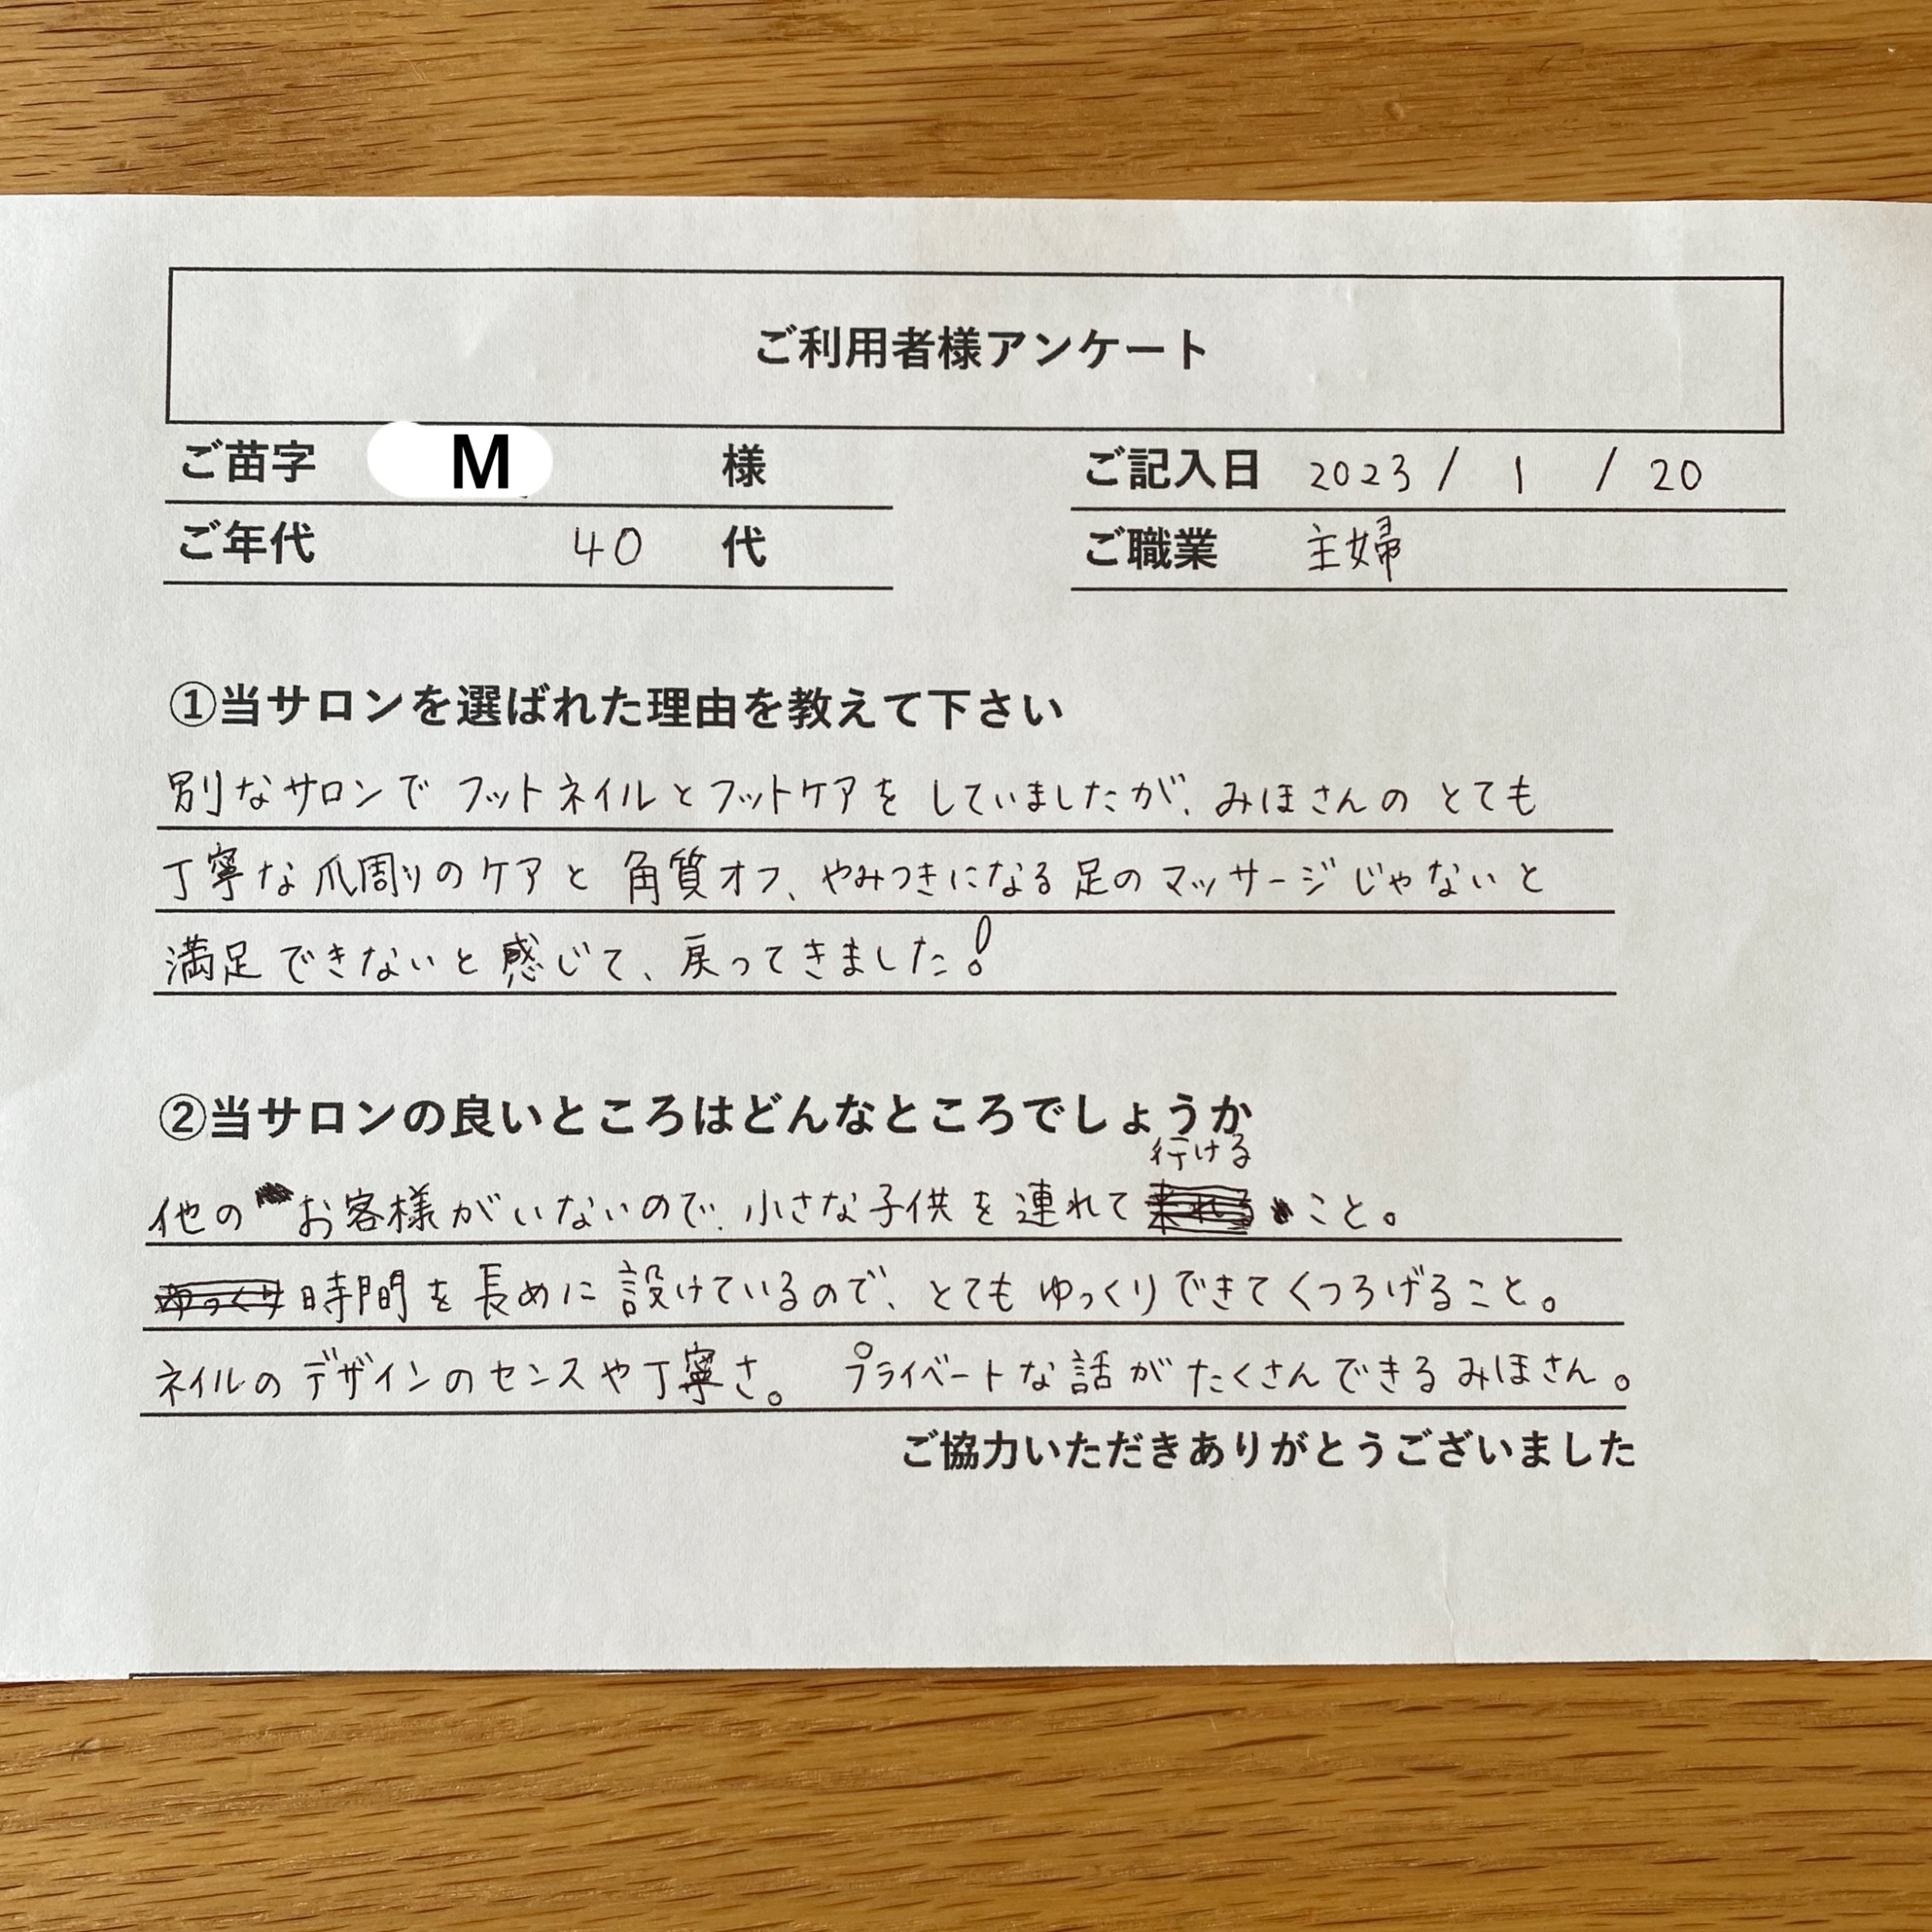 ご利用者様アンケート
ご苗字 M 様 ご記入日 2023 / 1 / 20
ご年代 40 代 ご職業 主婦
①当サロンを選ばれた理由を教えて下さい
別なサロンでフットネイルとフットケアをしていましたが、みほさんのとても
丁寧な爪周りのケアと角質オフ、やみつきになる足のマッサージじゃないと
満足できないと感じて、戻ってきました!
②当サロンの良いところはどんなところでしょうか
行ける
他のお客様がいないので、小さな子供を連れて来れること。
ゆっくり時間を長めに設けているので、とてもゆっくりできてくつろげること。
ネイルのデザインのセンスや丁寧さ。 プライベートな話がたくさんできるみほさん。
ご協力いただきありがとうございました